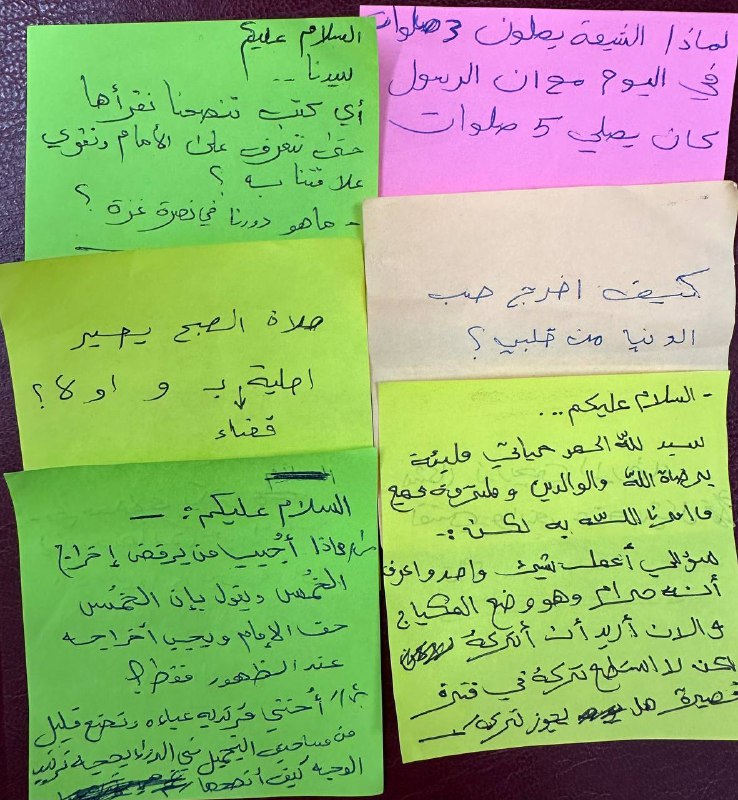 السلام عليكم
سيدنا ..
أي كتب تنصحنا نقرأها
حتى نتعرف على الأمام ونقوي
علاقتنا به ؟
- ماهو دورنا في نصرة غزة ؟
لماذا الشيعة يصلون 3 صلوات
في اليوم مع ان الرسول
كان يصلي 5 صلوات
صلاة الصبح يصير
اصلية بـ و او لا ؟
قضاء
كيف اخرج حب
الدنيا من قلبي ؟
السلام عليكم :-
ماذا أُجيب من يرفض إخراج
الخُمُس ويقول بإن الخُمُس
حق الإمام ويجب أخراجه
عند الظهور فقط ؟
أُختي مرتديه عباءه وتضع قليل
من مساحيق التجميل بحجة ترتيب
الوجه كيف أنصحها
- السلام عليكم ...
سيد لله الحمد حياتي مليئة
برضاة الله والوالدين وملتزمة بجميع
ما امرنا الله به لكن :-
سؤالي أعمل شيء واحد واعرف
أنه حرام وهو وضع المكياج
والان أريد أن أتركهُ
لكن لا استطيع تركهُ في فترة
قصيرة هل يجوز تركه